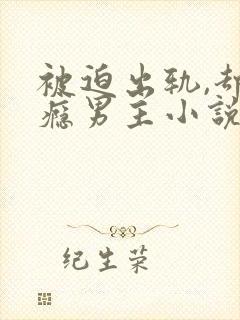 被迫出轨,却
瘾男主小説
纪生荣